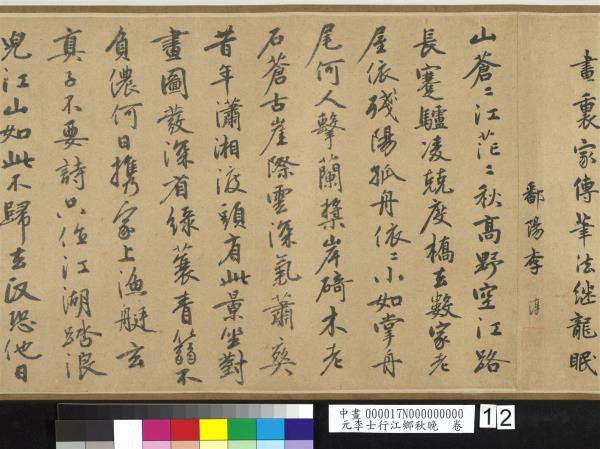 畫裏家傳筆法继龍眠
鄱陽李淳
山蒼〻江茫〻秋髙野空江路
長蹇驢凌兢度橋去數家老
屋依殘陽孤舟依〻小如掌舟
尾何人擊蘭槳岸碕木老
石蒼古崖際雲深氣蕭爽
昔年瀟湘渡頭有此景坐對
畫圖發深省綠蓑青篛不
負儂何日携家上漁艇玄
真子不要詩只位江湖踏浪
兒江山如此不歸去反恐他日
中畫 000017N000000000
元李士行江鄉秋晚 卷
12